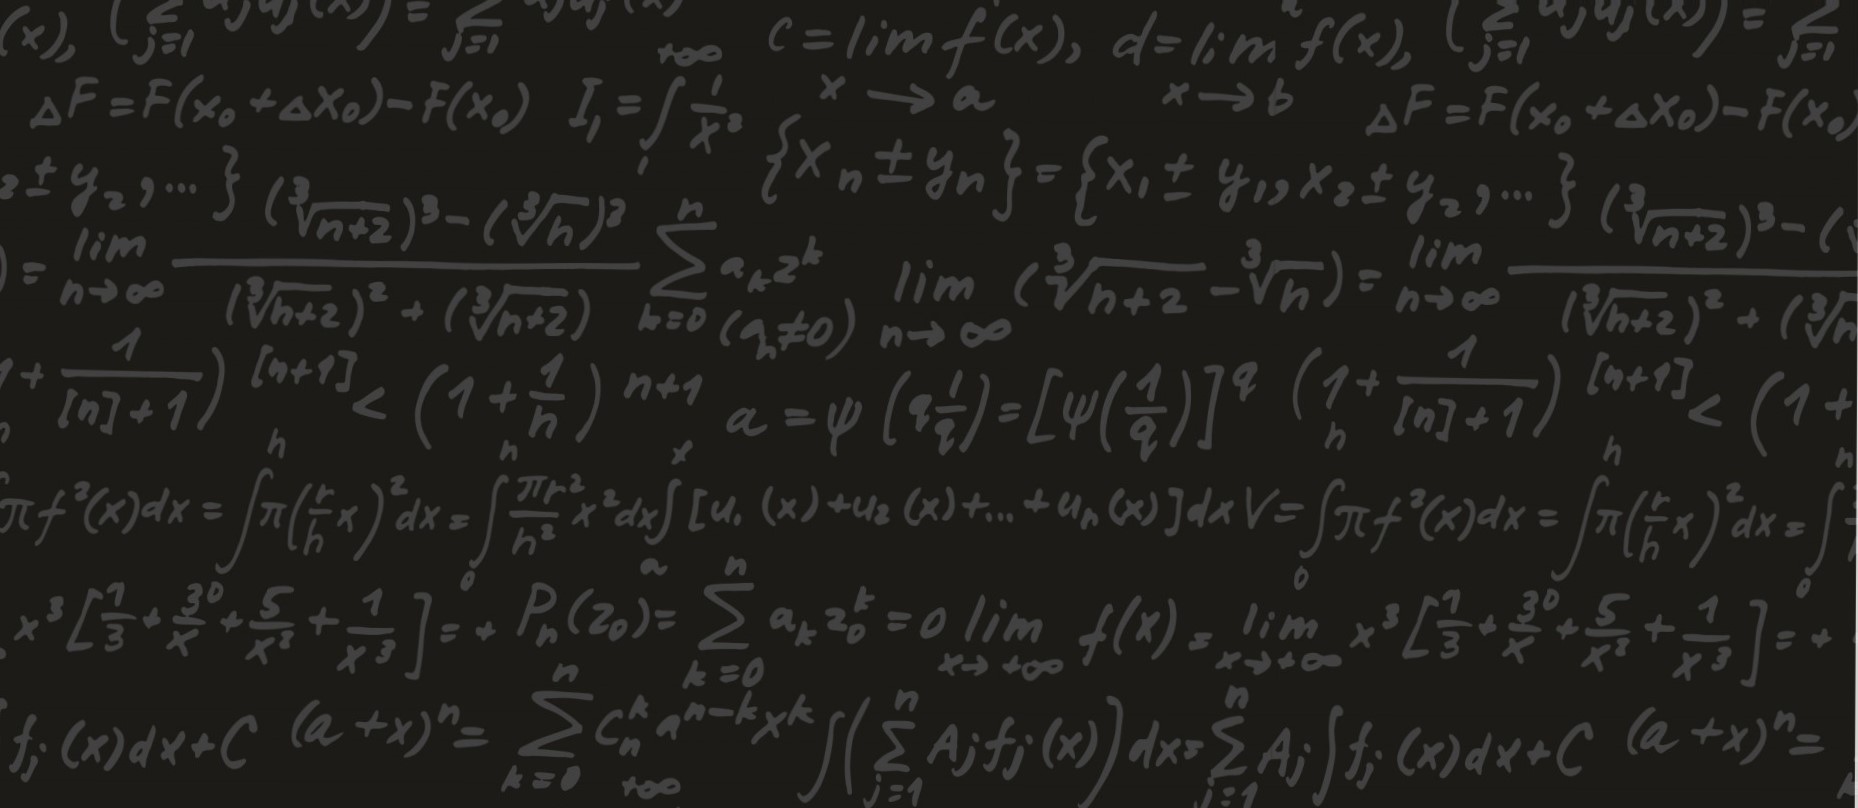 (x), (∑_{j=1} ... (x)) = ∑_{j=1} ... +∞ c = lim_{x→a} f(x), d = lim_{x→b} f(x), (∑_{j=1} ... (x)) = ∑_{j=1}
ΔF = F(x₀ + Δx₀) − F(x₀) I₁ = ∫₁^{+∞} 1/x² ΔF = F(x₀ + Δx₀) − F(x₀)
₂ ± y₂, ... } {xₙ ± yₙ} = {x₁ ± y₁, x₂ ± y₂, ... }
) = lim_{n→∞} ((∛(n+2))³ − (∛n)³) / ((∛(n+2))² + (∛(n+2)) ∑_{k=0}^{n} a_k z^k (aₙ≠0) lim_{n→∞} (∛(n+2) − ∛n) = lim_{n→∞} (∛(n+2))³ − ( / (∛(n+2))² + (∛n
1 + 1/([n]+1))^{[n+1]} < (1 + 1/n)^{n+1} a = ψ (q 1/q) = [ψ(1/q)]^q (1 + 1/([n]+1))^{[n+1]} < (1 +
πf²(x)dx = ∫^h π(r/h x)² dx = ∫₀^h πr²/h² x²dx ∫ₐ^x [u₁(x) + u₂(x) + ... + uₙ(x)]dx V = ∫₀^h πf²(x)dx = ∫^h π(r/h x)² dx = ∫₀^h
x³[1/3 + 30/x + 5/x² + 1/x³] = + Pₙ(z₀) = ∑_{k=0}^{n} a_k z₀^k = 0 lim_{x→+∞} f(x) = lim_{x→+∞} x³[1/3 + 30/x + 5/x² + 1/x³] = +
f_j(x)dx + C (a + x)ⁿ = ∑_{k=0}^{n} Cₙ^k a^{n−k} x^k ∫(∑_{j=1}^{n} A_j f_j(x))dx = ∑_{j=1}^{n} A_j ∫f_j(x)dx + C (a + x)ⁿ =
+∞